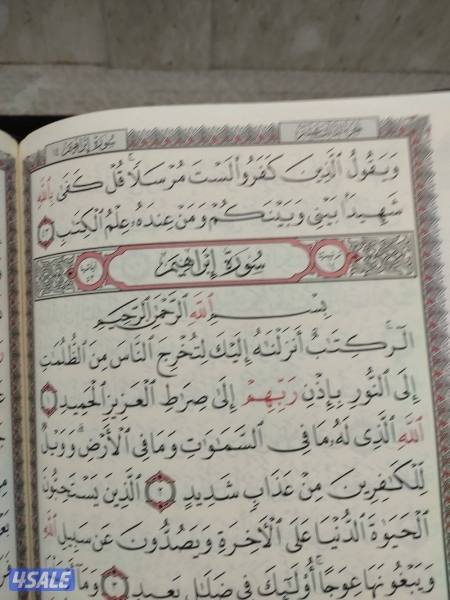 سُورَةُ إِبْرَاهِيم ١٤
وَيَقُولُ ٱلَّذِينَ كَفَرُوا۟ لَسْتَ مُرْسَلًا ۚ قُلْ كَفَىٰ بِٱللَّهِ
شَهِيدًۢا بَيْنِى وَبَيْنَكُمْ وَمَنْ عِندَهُۥ عِلْمُ ٱلْكِتَٰبِ ٤٣
سُورَةُ إِبْرَاهِيم
بِسْمِ ٱللَّهِ ٱلرَّحْمَٰنِ ٱلرَّحِيمِ
الٓر ۚ كِتَٰبٌ أَنزَلْنَٰهُ إِلَيْكَ لِتُخْرِجَ ٱلنَّاسَ مِنَ ٱلظُّلُمَٰتِ
إِلَى ٱلنُّورِ بِإِذْنِ رَبِّهِمْ إِلَىٰ صِرَٰطِ ٱلْعَزِيزِ ٱلْحَمِيدِ ١
ٱللَّهِ ٱلَّذِى لَهُۥ مَا فِى ٱلسَّمَٰوَٰتِ وَمَا فِى ٱلْأَرْضِ ۗ وَوَيْلٌ
لِّلْكَٰفِرِينَ مِنْ عَذَابٍ شَدِيدٍ ٢ ٱلَّذِينَ يَسْتَحِبُّونَ
ٱلْحَيَوٰةَ ٱلدُّنْيَا عَلَى ٱلْءَاخِرَةِ وَيَصُدُّونَ عَن سَبِيلِ ٱللَّهِ
وَيَبْغُونَهَا عِوَجًا ۚ أُو۟لَٰٓئِكَ فِى ضَلَٰلٍۭ بَعِيدٍ ٣ وَمَآ
4SALE